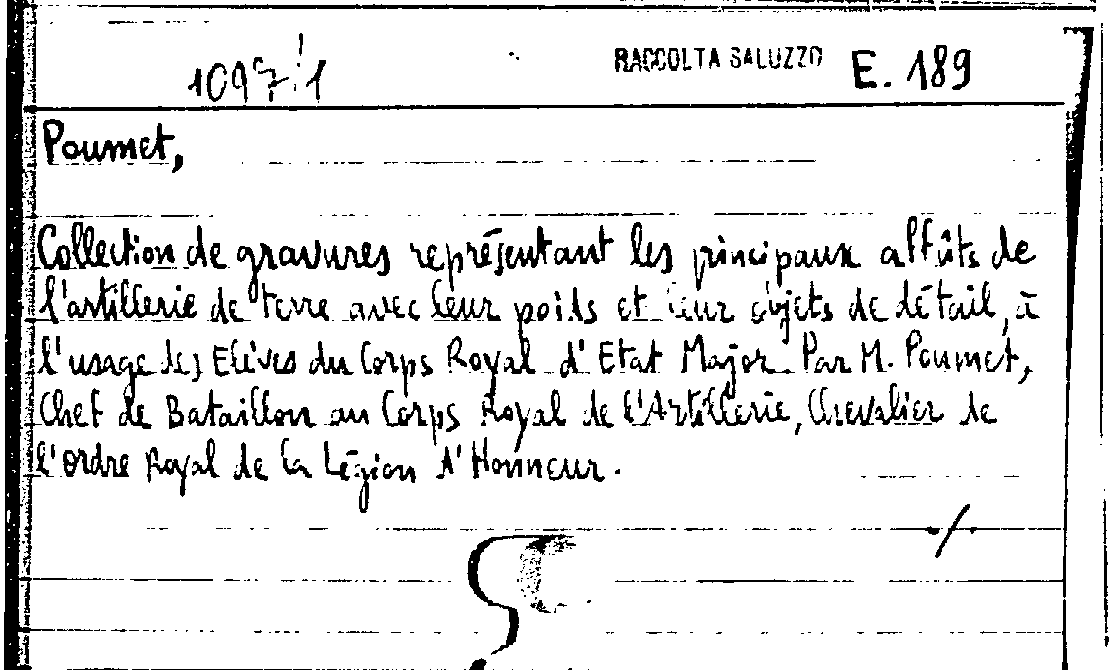 1097:1 RACCOLTA SALUZZO E. 189
Poumet,
Collection de gravures représentant les principaux affûts de
l'artillerie de terre avec leur poids et leur objets de détail, à
l'usage des Elèves du Corps Royal d'Etat Major. Par M. Poumet,
Chef de Bataillon au Corps Royal de l'Artillerie, Chevalier de
l'Ordre Royal de la Légion d'Honneur.
./.